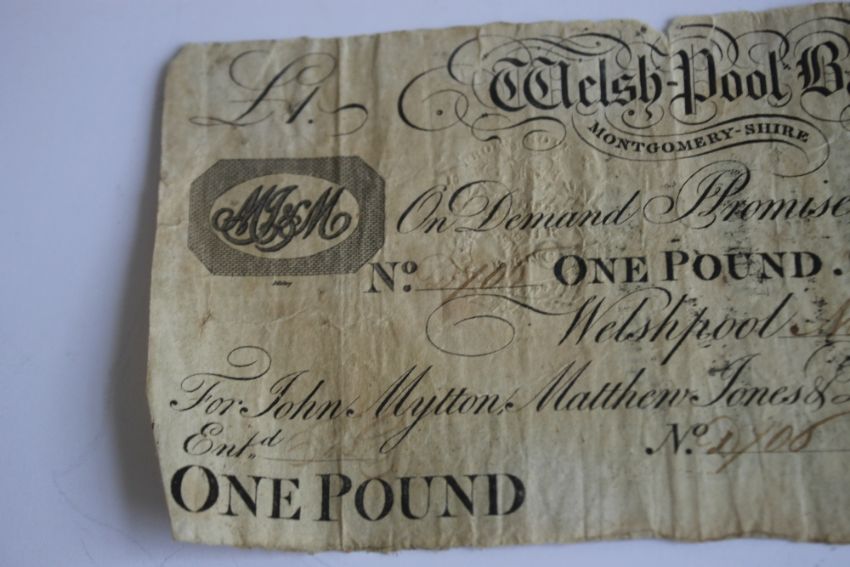 £1.
Welsh-Pool
MONTGOMERY-SHIRE
MJ&M
On Demand Promise
No.
ONE POUND.
Welshpool
For John Mytton, Matthew Jones &
Ent.d
No. 2706
ONE POUND